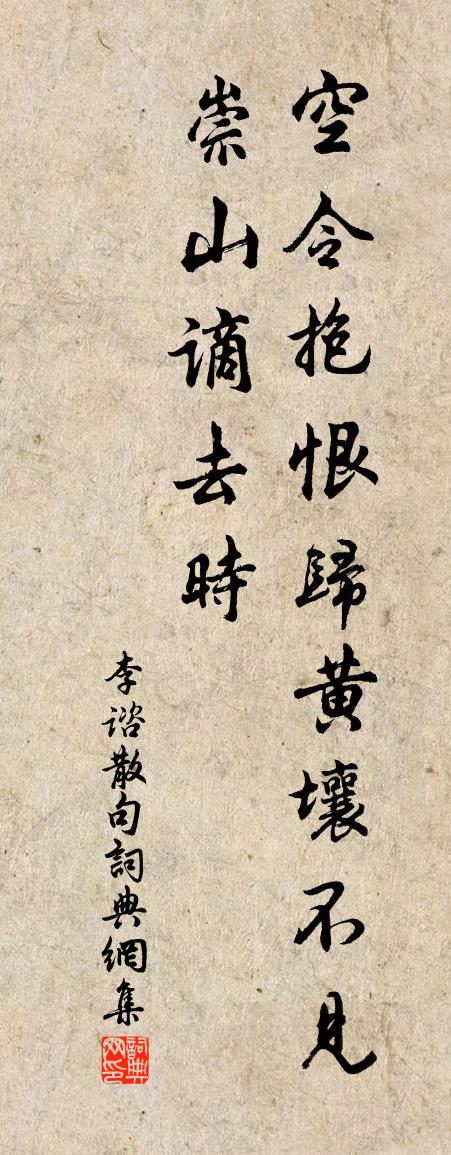 空令抱恨歸黃壤不見
崇山謫去時
李諮散句詞典網集
詞典网印